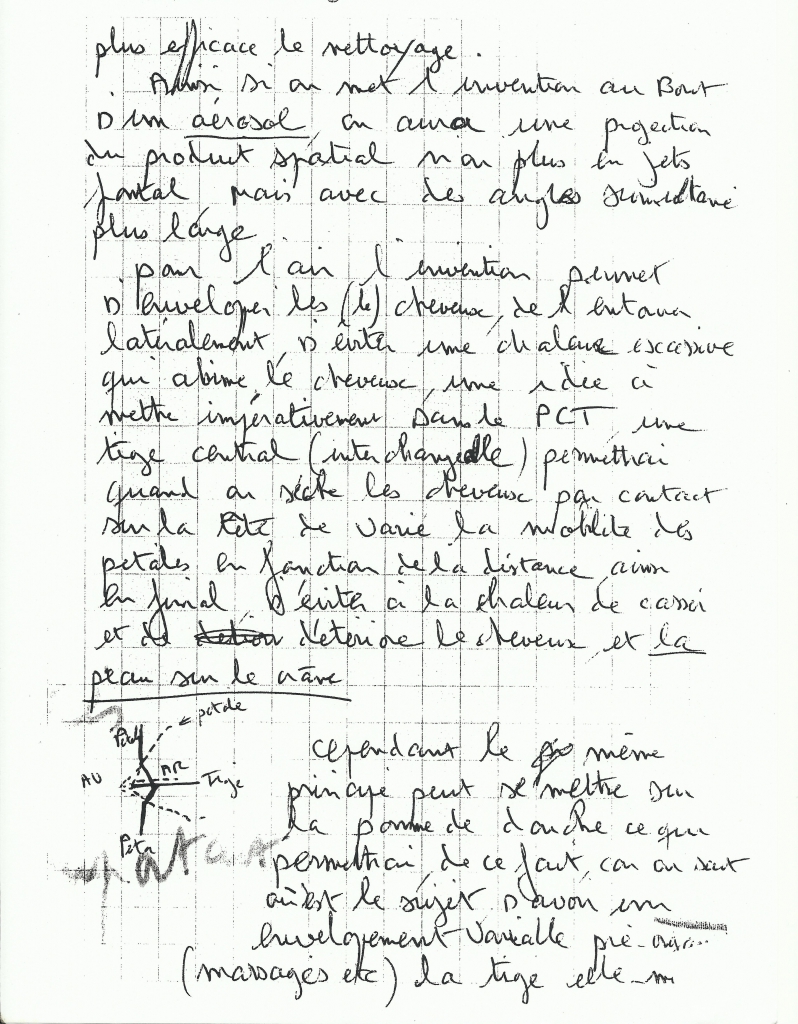 plus efficace le nettoyage.
Ainsi si on met l'invention au Bout
D'un aérosol, on aura une projection
du produit spatial non plus en jets
frontal, mais avec des angles
plus large.
pour l'air l'invention permet
D'enveloper les (le) cheveux, de l'entourer
latéralement, D'éviter une chaleur excessive
qui abime le cheveux, une idée à
mettre impérativement Dans le PCT, une
tige central (interchangeable) permettrai
quand on sèche les cheveux par contact
sur la tête de varié la mobilité des
petales en fonction de la distance, ainsi
en final, D'éviter à la chaleur de casser
et de détériore le cheveux, et la
peau sur le crâne
petale
AV
AR
Tige
cependant le même
principe peut se mettre sur
la pomme de douche ce qui
permettrai, de ce fait, car on sait
où est le sujet D'avoir un
envelopement variable
(massages etc) la tige